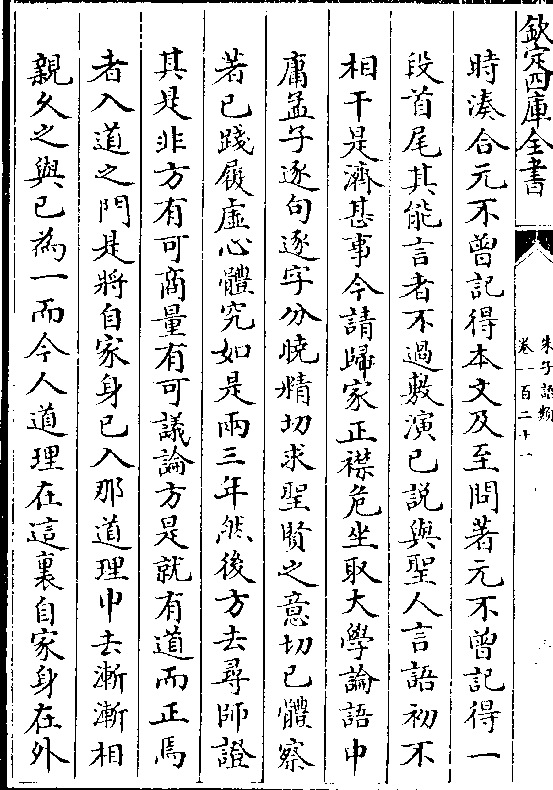 欽定四庫全書
朱子語類
卷一百二十一
時湊合元不曾記得本文及至問著元不曾記得一
段首尾其能言者不過敷演己説與聖人言語初不
相干是濟甚事今請歸家正襟危坐取大學論語中
庸孟子逐句逐字分曉精切求聖賢之意切己體察
著己踐履虛心體究如是兩三年然後方去尋師證
其是非方有可商量有可議論方是就有道而正焉
者入道之門是將自家身己入那道理中去漸漸相
親久之與己為一而今人道理在這裏自家身在外